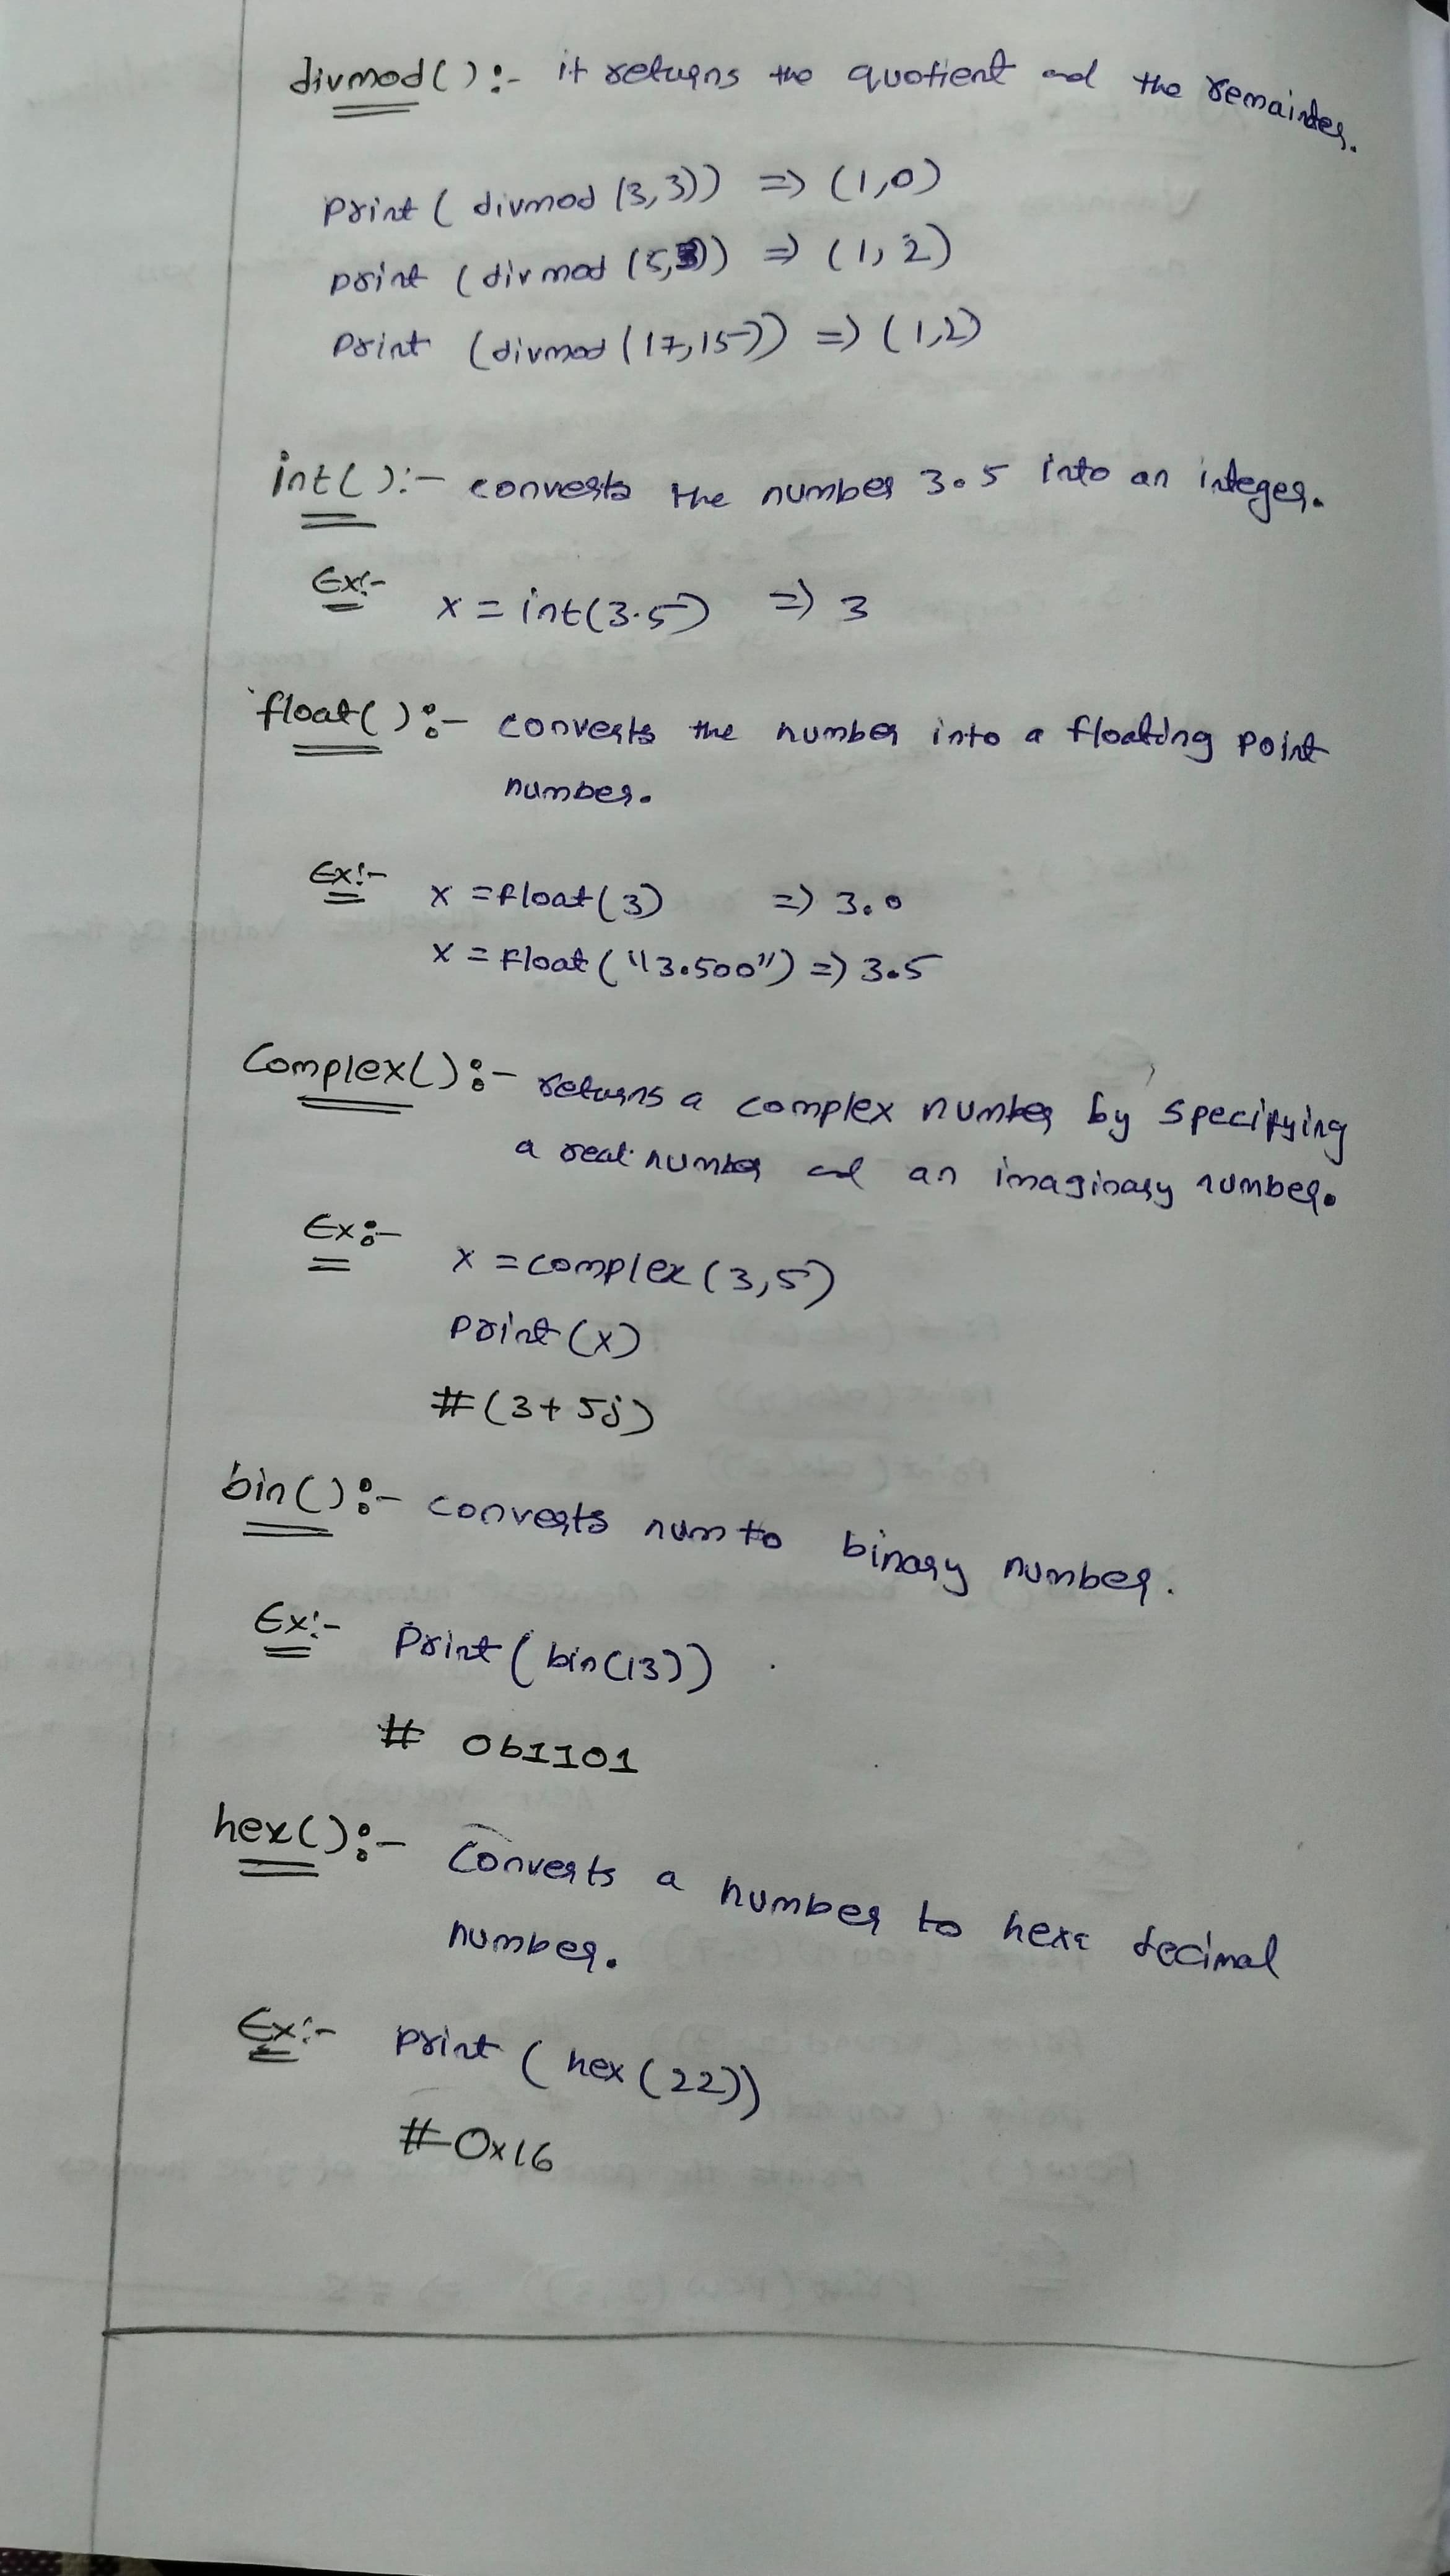 divmod() :- it returns the quotient and the remainder.
print ( divmod (3,3)) => (1,0)
print (divmod (5,3)) => (1,2)
print (divmod (17,15)) => (1,2)
int() :- converts the number 3.5 into an integer.
Ex:- x = int(3.5) => 3
float() :- converts the number into a floating point
number.
Ex:- x = float(3) => 3.0
x = float("3.500") => 3.5
Complex() :- returns a complex number by specifying
a real number and an imaginary number.
Ex:- x = complex (3,5)
print (x)
# (3+5j)
bin() :- converts num to binary number.
Ex:- Print ( bin(13))
# 0b1101
hex() :- Converts a number to hexa decimal
number.
Ex:- print ( hex (22))
# 0x16